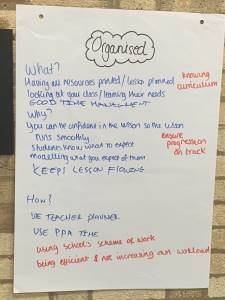 Organised
What?
Having all resources printed/lesson planned
knowing curriculum
looking at your class/learning their needs
GOOD TIME MANAGEMENT
Why?
You can be confident in the lesson so the lesson
runs smoothly
ensure progression on track
students know what to expect
modelling what you expect of them
KEEPS LESSON FLOWING
How?
USE TEACHER PLANNER
USE PPA TIME
using school's scheme of work
being efficient & not increasing own workload